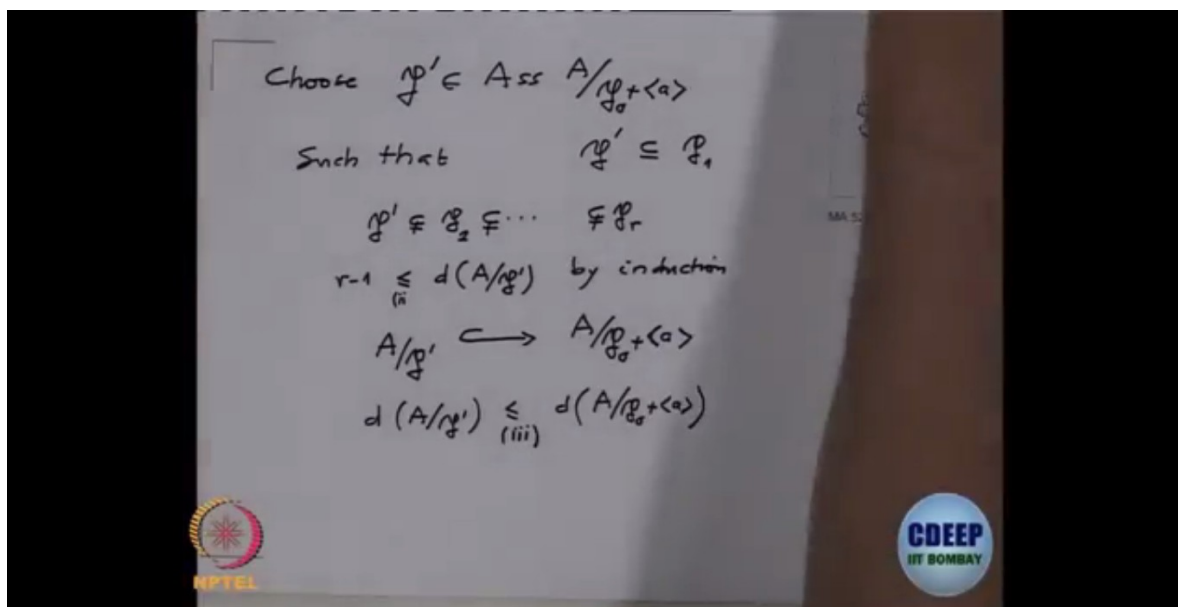 Choose 𝔭' ∈ Ass A/𝔭₀+<a>
Such that 𝔭' ⊆ 𝔭₁
𝔭' ⊊ 𝔭₂ ⊊ ⋯ ⊊ 𝔭ᵣ
r-1 ≤ d(A/𝔭') by induction
(ii
A/𝔭' ↪ A/𝔭₀+<a>
d(A/𝔭') ≤ d(A/𝔭₀+<a>)
(iii)
MA 52
NPTEL
CDEEP
IIT BOMBAY